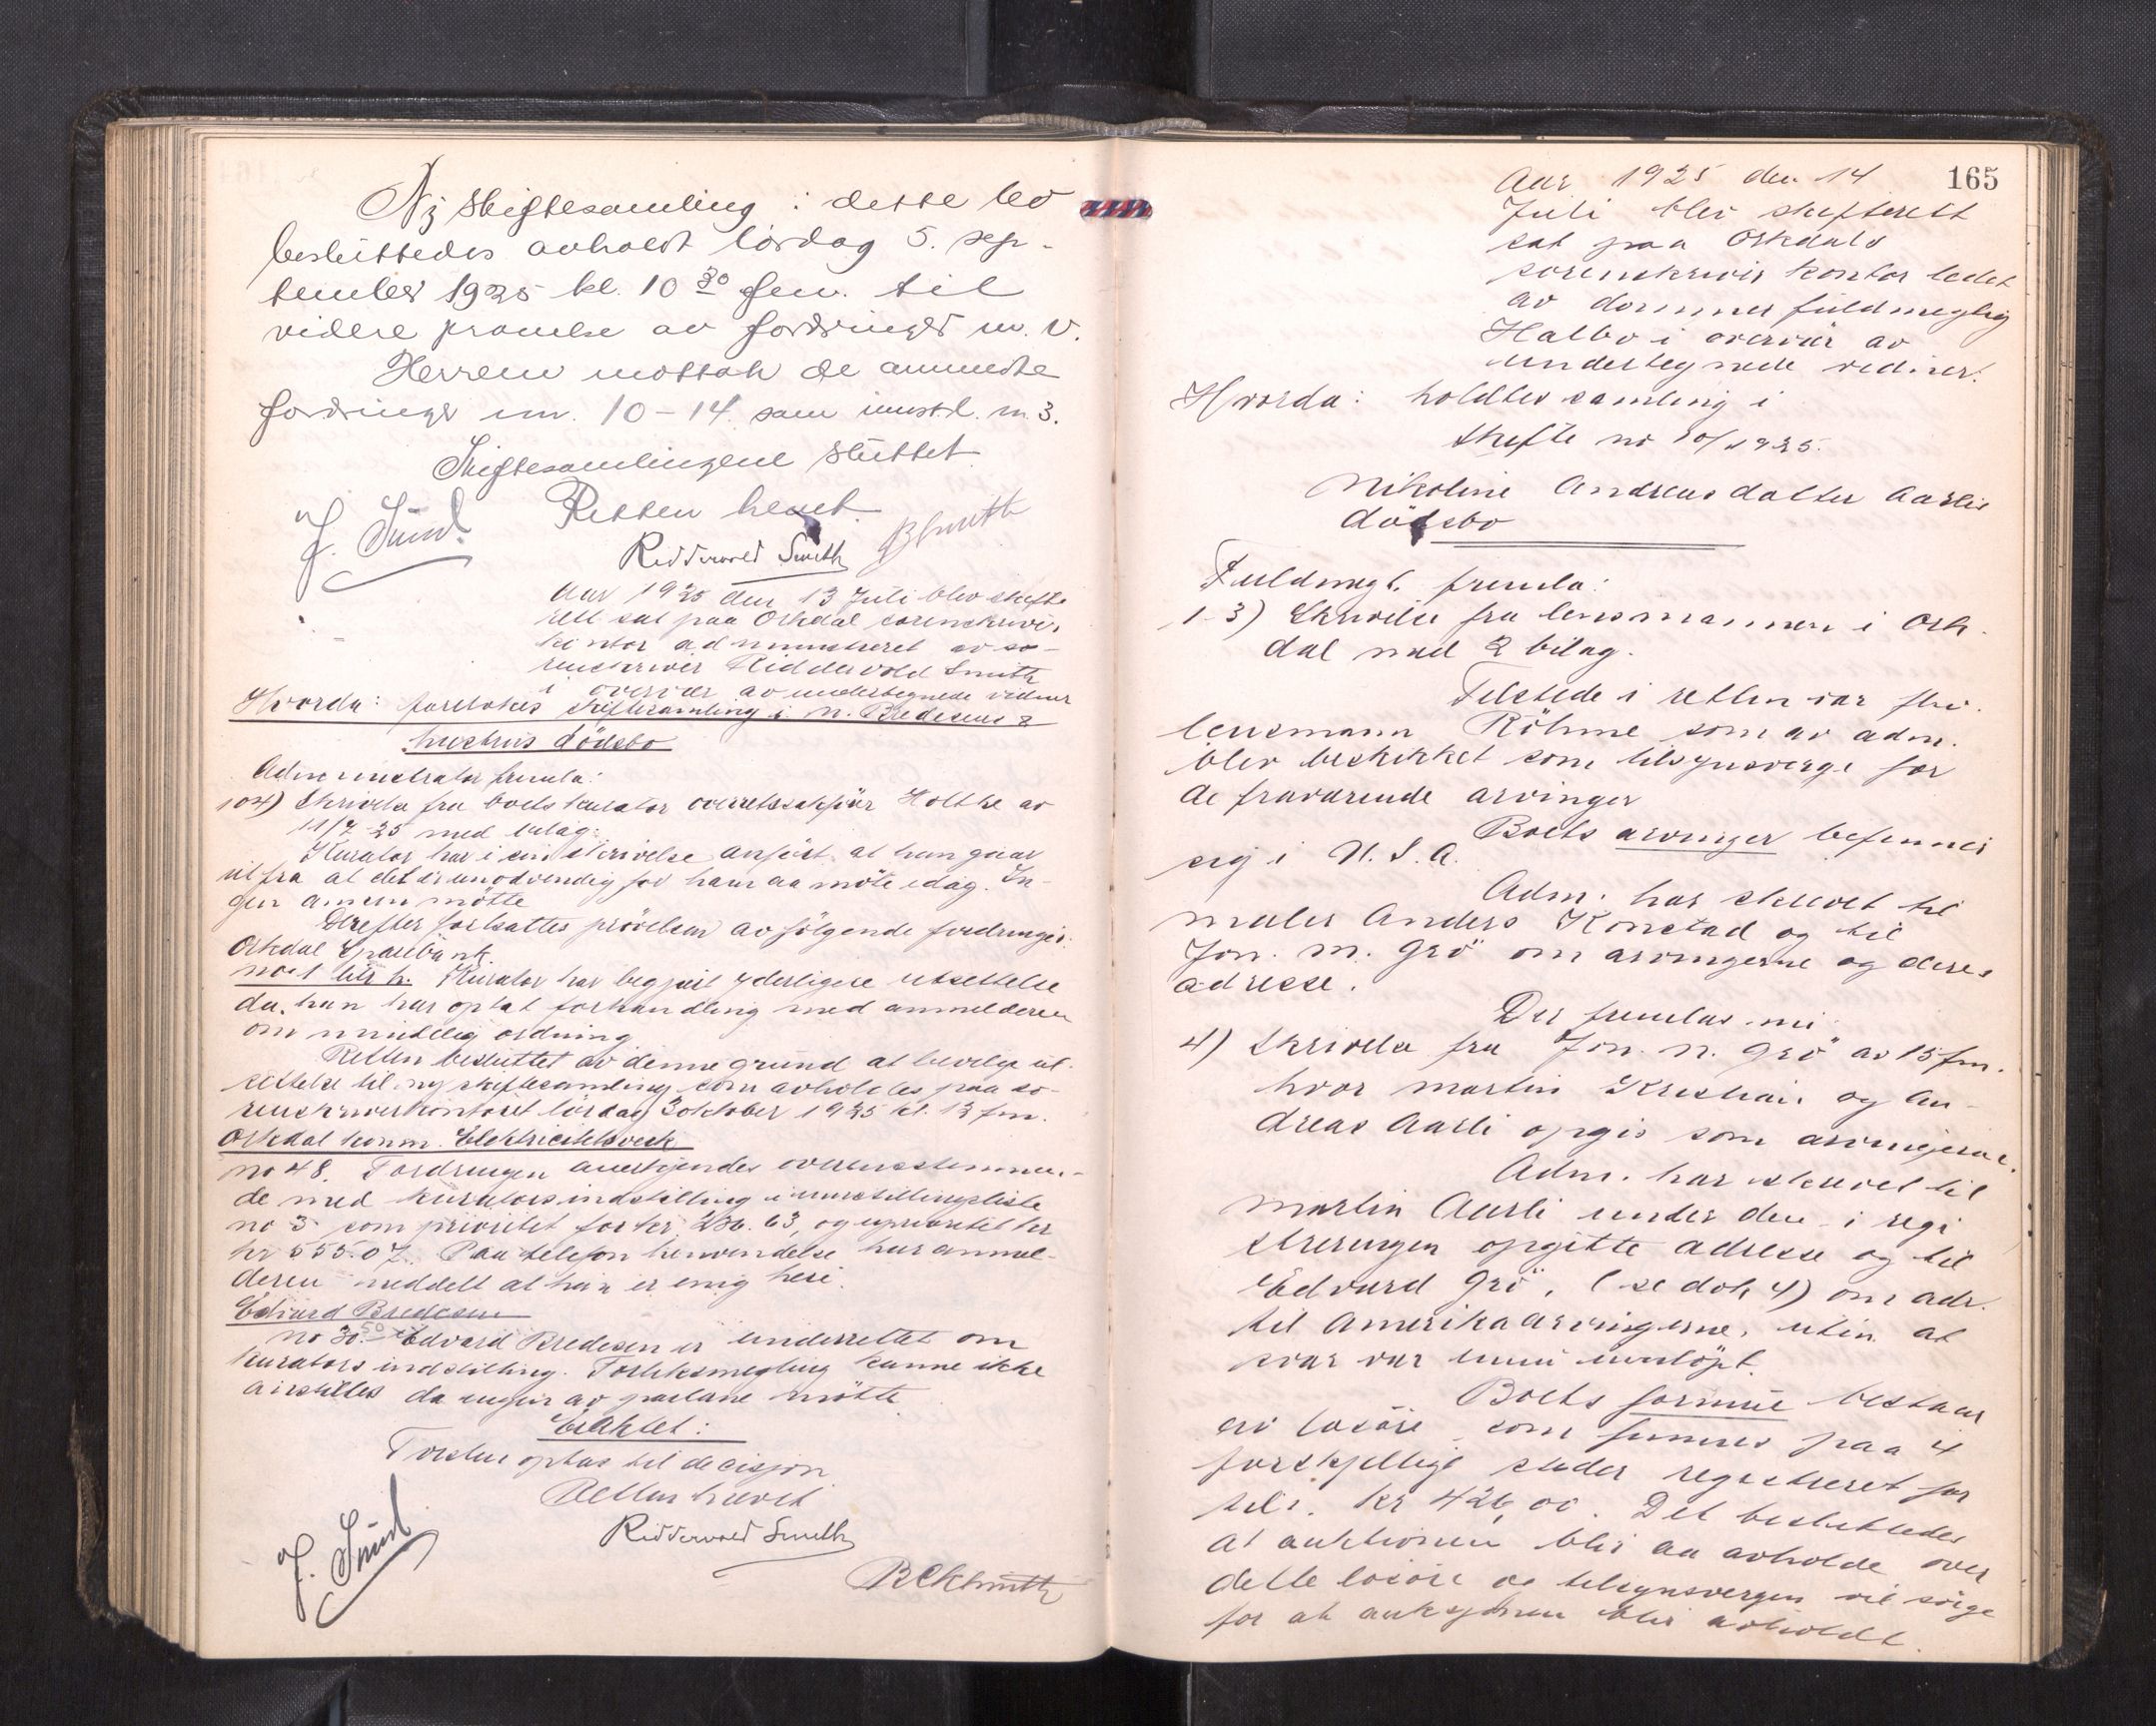 Ny skiftesamling i dette bo
besluttedes avholdt lördag 5. sep-
tember 1925 kl. 10 30 fm. til
videre prövelse av fordringer m. v.
Herrem mottok de anmeldte
fordringer nr. 10-14 som innst.l. nr. 3.
Skiftesamlingene sluttet
Retten hevet.
J. Sund.
Ridderwold Smith
BSmith
Aar 1925 den 13 Juli blev skifte
rett sat paa Orkdal sorenskriver
kontor administreret av so-
renskriver Ridderwold Smith
i overvær av undertegnede vidner
Hvorda: foretokes skiftesamling i N. Bredesens &
hustrus dödsbo
Administrator fremla:
104) Skrivelse fra boets kurator overretssakförer Holthe av
11/7 25 med bilag:
Kurator har i sin skrivelse anfört at han gaar
ut fra at det er unödvendig for ham aa möte idag. In-
gen annen mötte
Derefter fortsattes prövelsen av fölgende fordringer:
Orkdal Sparebank.
no 1 litr h. Kurator har begjært yderligere utsettelse
da han har optat forhandling med anmelderen
om mindelig ordning
Retten besluttet av denne grund at bevilge ut-
settelse til ny skiftesamling som avholdes paa so-
renskriverkontoret lördag 3 oktober 1925 kl. 12 fm.
Orkdal komm. Elektricitetsverk
no 48. Fordringen anerkjendes overensstemmen-
de med kurators indstilling i innstillingsliste
no 3 som prioritet for kr. 236.63, og uprioritet for
kr 555.07. Paa telefon henvendelse har anmel-
deren meddelt at han er enig heri.
Edvard Bredesen
no 30. 50 Edvard Bredesen er underrettet om
kurators indstilling. Forliksmegling kunne ikke
anstilles da ingen av partene mötte.
Eraktet:
Tvisten optas til decisjon
Retten hevet
Ridderwold Smith
J. Sund
BSmith
165
Aar 1925 den 14
Juli blev skifterett
sat paa Orkdals
sorenskriver kontor ledet
av dommerfuldmegtig
Halbo i overvær av
undertegnede vidner.
Hvorda: holdtes samling i
Skifte no 10/1925.
Nikoline Andreasdatter Aarlis
dödsbo
Fuldmegt. fremla:
1-3) Skrivelse fra lensmannen i Ork-
dal med 2 bilag.
Tilstede i retten var fhv.
lensmann Röhme som av adm.
blev beskikket som tilsynsverge for
de fraværende arvinger
Boets arvinger befinner
sig i U. S. A.
Adm. har skrevet til
maler Anders Konstad og til
Jon. M. Grö om arvingerne og deres
adresse.
Der fremlas nu:
4) Skrivelse fra Jon. N. Grö av 15 fm.
hvor Martin Kristian og An-
dreas Aarli opgis som arvingerne.
Adm. har skrevet til
Martin Aarli under den i regi
streringen opgitte adresse og til
Edvard Grö, (se dok 4) om adr.
til Amerikaarvingerne, uten at
svar var ennu innlöpt.
Boets formue bestaar
av lösöre som finnes paa 4
forskjellige steder registreret for
tils. kr 426,00. Det besluttedes
at auktionen blir aa avholde over
dette lösöre og tilsynsvergen vil sörge
for at auksjonen blir avholdt.